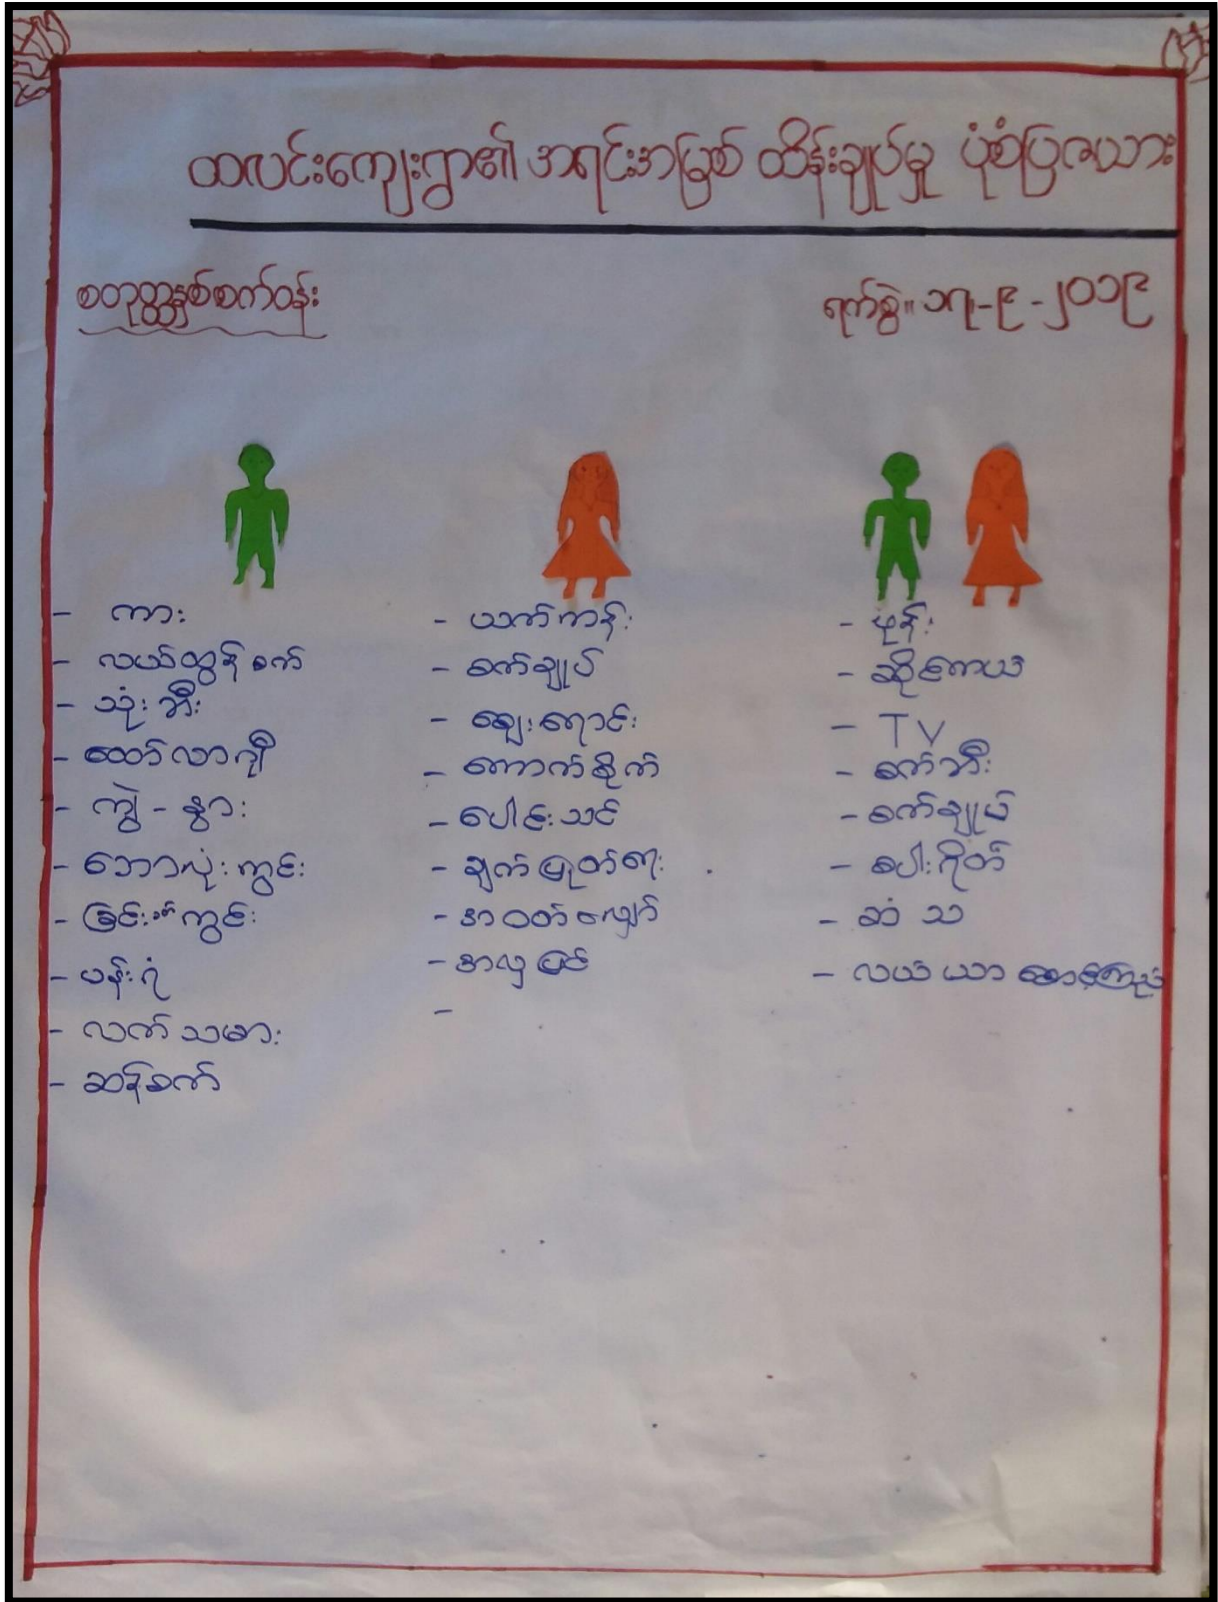 ထလင်းကျေးရွာ၏ အရင်းအမြစ် ထိန်းချုပ်မှု ပုံစံပြဇယား
စတုတ္ထနှစ်စက်ဝန်း
ရက်စွဲ။ ၁၇-၉-၂၀၁၉
- ကား
- လယ်ထွန်စက်
- သုံးဘီး
- ထော်လာဂျီ
- ကျွဲ - နွား
- ဘောလုံးကွင်း
- ခြင်းခတ်ကွင်း
- ပန်းရံ
- လက်သမား
- ဆန်စက်
- ယက်ကန်း
- စက်ချုပ်
- ဈေးရောင်း
- ကောက်စိုက်
- ပေါင်းသင်
- ချက်ပြုတ်ရေး
- အဝတ်လျှော်
- အလှပြင်
-
- ဖုန်း
- ဆိုင်ကယ်
- TV
- စက်ဘီး
- စက်ချုပ်
- စပါးရိတ်
- ဆံသ
- လယ်ယာစောင့်ကြည့်